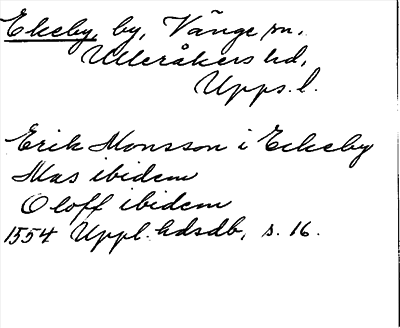 Ekeby, by, Vänge sn,
Ulleråkers hd,
Upps. l.
Erik Monsson i Eekeby
Mas ibidem
Oloff ibidem
1554 Uppl. hdsdb, s. 16.